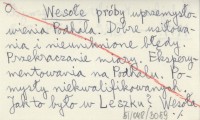 O Wesołe próby uprzemysło-
wienia Podhala. Dobre usiłowa-
nia i nieuniknione błędy.
Przekraczanie miary. Ekspery-
mentowania na Podhalu. Po-
mysły niekwalifikowane.
Jak to było w Leszku? Wesoła